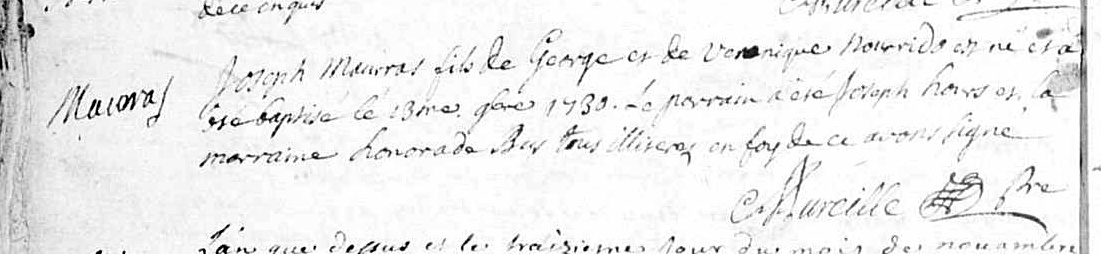 de ce enquis
Joseph Maurras fils de George et de Veronique Nourrido est né et a
Maurras
été baptisé le 13me. 9bre 1730. Le parrain a été Joseph hours et la
marraine honorade Bus tous illiteres en foy de ce avons signe
Aureille Pre
L'an que dessus et le traizieme jour du mois de novambre